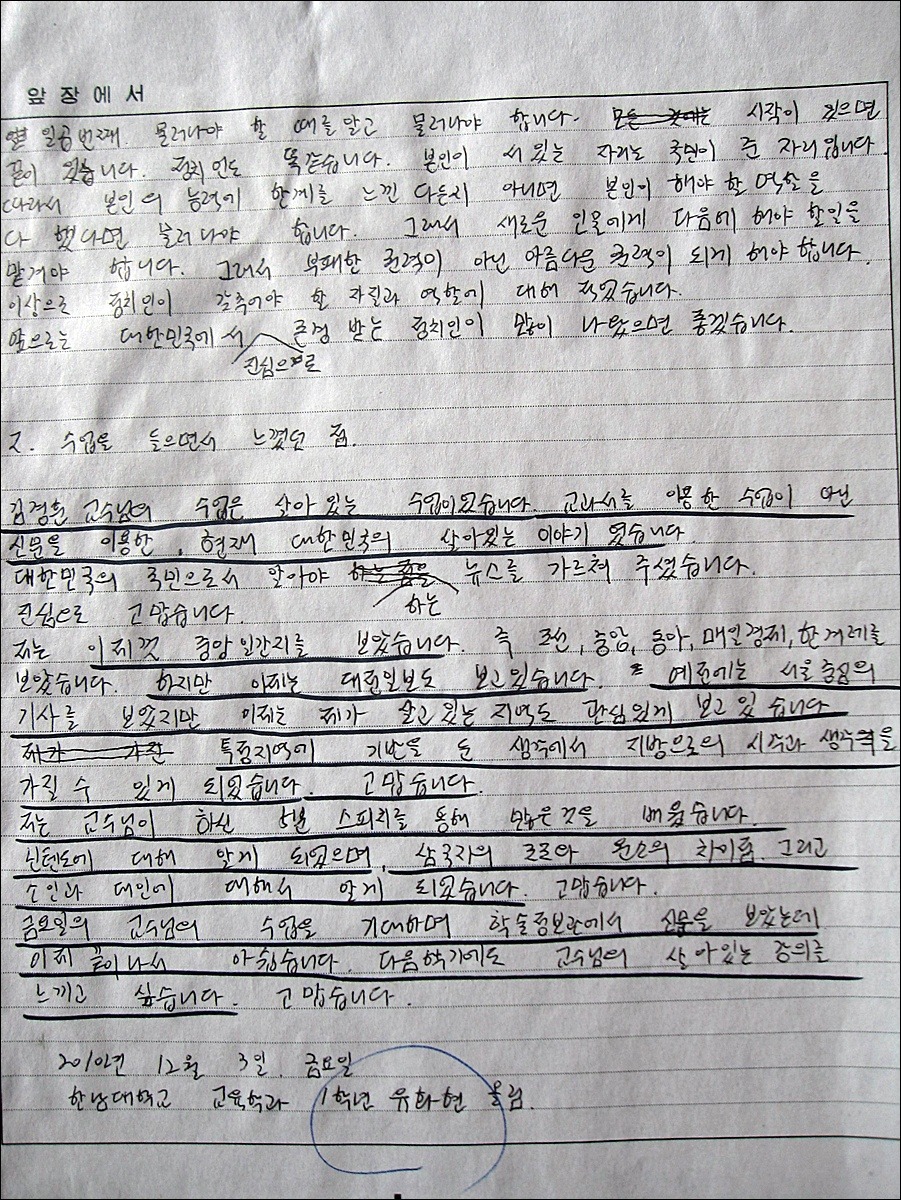 앞 장 에 서
열 일곱번째. 물러나야 할 때를 알고 물러나야 합니다. 모든 것에는 시작이 있으면
끝이 있습니다. 정치인도 똑같습니다. 본인이 서있는 자리는 국민이 준 자리입니다.
따라서 본인의 능력에 한계를 느낀다든지 아니면 본인이 해야 할 역할을
다 했다면 물러나야 합니다. 그래서 새로운 인물에게 다음에 해야 할일을
맡겨야 합니다. 그래서 부패한 권력이 아닌 아름다운 권력이 되게 해야합니다.
이상으로 정치인이 갖추어야 할 자질과 역할에 대해 적었습니다.
앞으로는 대한민국에서 존경 받는 정치인이 많이 나왔으면 좋겠습니다.
진심으로
2. 수업을 들으면서 느꼈던 점.
김경훈 교수님의 수업은 살아있는 수업이었습니다. 교과서를 이용한 수업이 아닌
신문을 이용한, 현재 대한민국의 살아있는 이야기 였습니다.
대한민국의 국민으로서 알아야 뉴스를 가르쳐 주셨습니다.
하는
진심으로 고맙습니다.
저는 이제껏 중앙일간지를 보았습니다. 즉 조선, 중앙, 동아, 매일경제, 한겨레를
보았습니다. 하지만 이제는 대전일보도 보고있습니다. 예전에는 서울중심의
기사를 보았지만 이제는 제가 살고있는 지역도 관심있게 보고있습니다
제가 가진 특정지역에 기반을 둔 생각에서 지방으로의 시각과 생각을
가질 수 있게 되었습니다. 고맙습니다.
저는 교수님이 하신 스피치를 통해 많은것을 배웠습니다.
닌텐도에 대해 알게 되었으며, 삼국지의 조조와 원소의 차이점. 그리고
소인과 대인에 대해서 알게 되었습니다. 고맙습니다.
금요일의 교수님의 수업을 기대하며 학술정보관에서 신문을 보았는데
이제 끝이나서 아쉽습니다. 다음학기에도 교수님의 살아있는 강의를
느끼고 싶습니다. 고맙습니다.
2010년 12월 3일. 금요일
한남대학교 교육학과 1학년 유화현 올림.